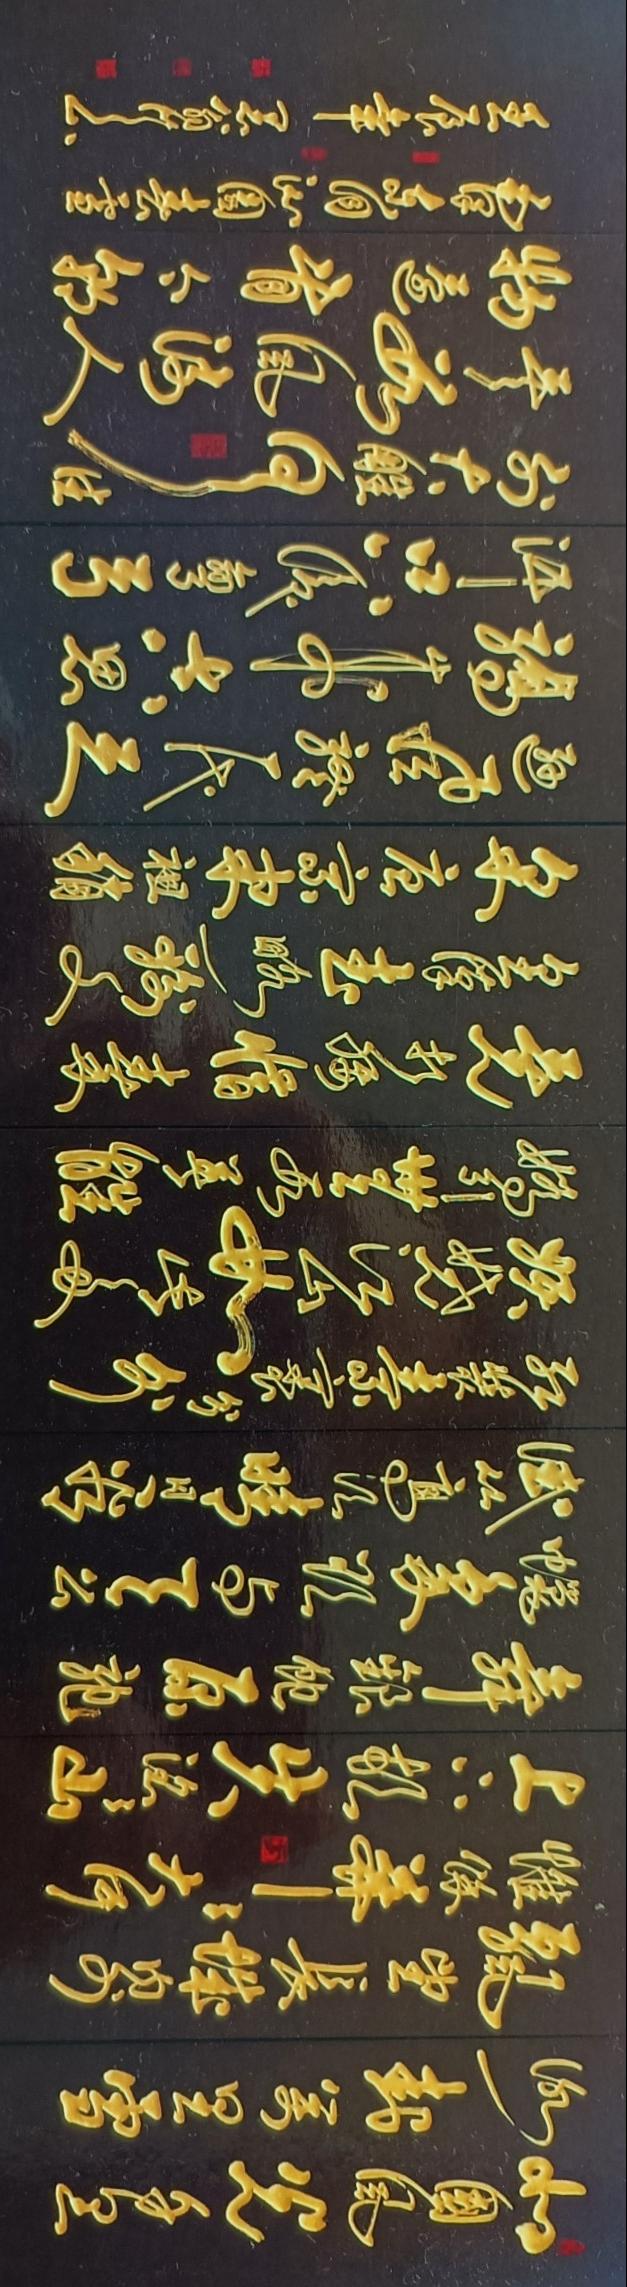 北國風光千里
冰封萬里雪
飄望長城内外
惟餘莽莽大河
上下頓失滔滔山
舞銀蛇原馳
蠟象欲與天公
試比高須晴日看
紅裝素裹分外
妖嬈江山如此多
嬌引無數英雄
競折腰惜秦皇
漢武略輸文
采唐宗宋祖稍
遜風騷一代天
驕成吉思
汗只識彎弓
射大雕俱往
矣數風流人
物還看今朝